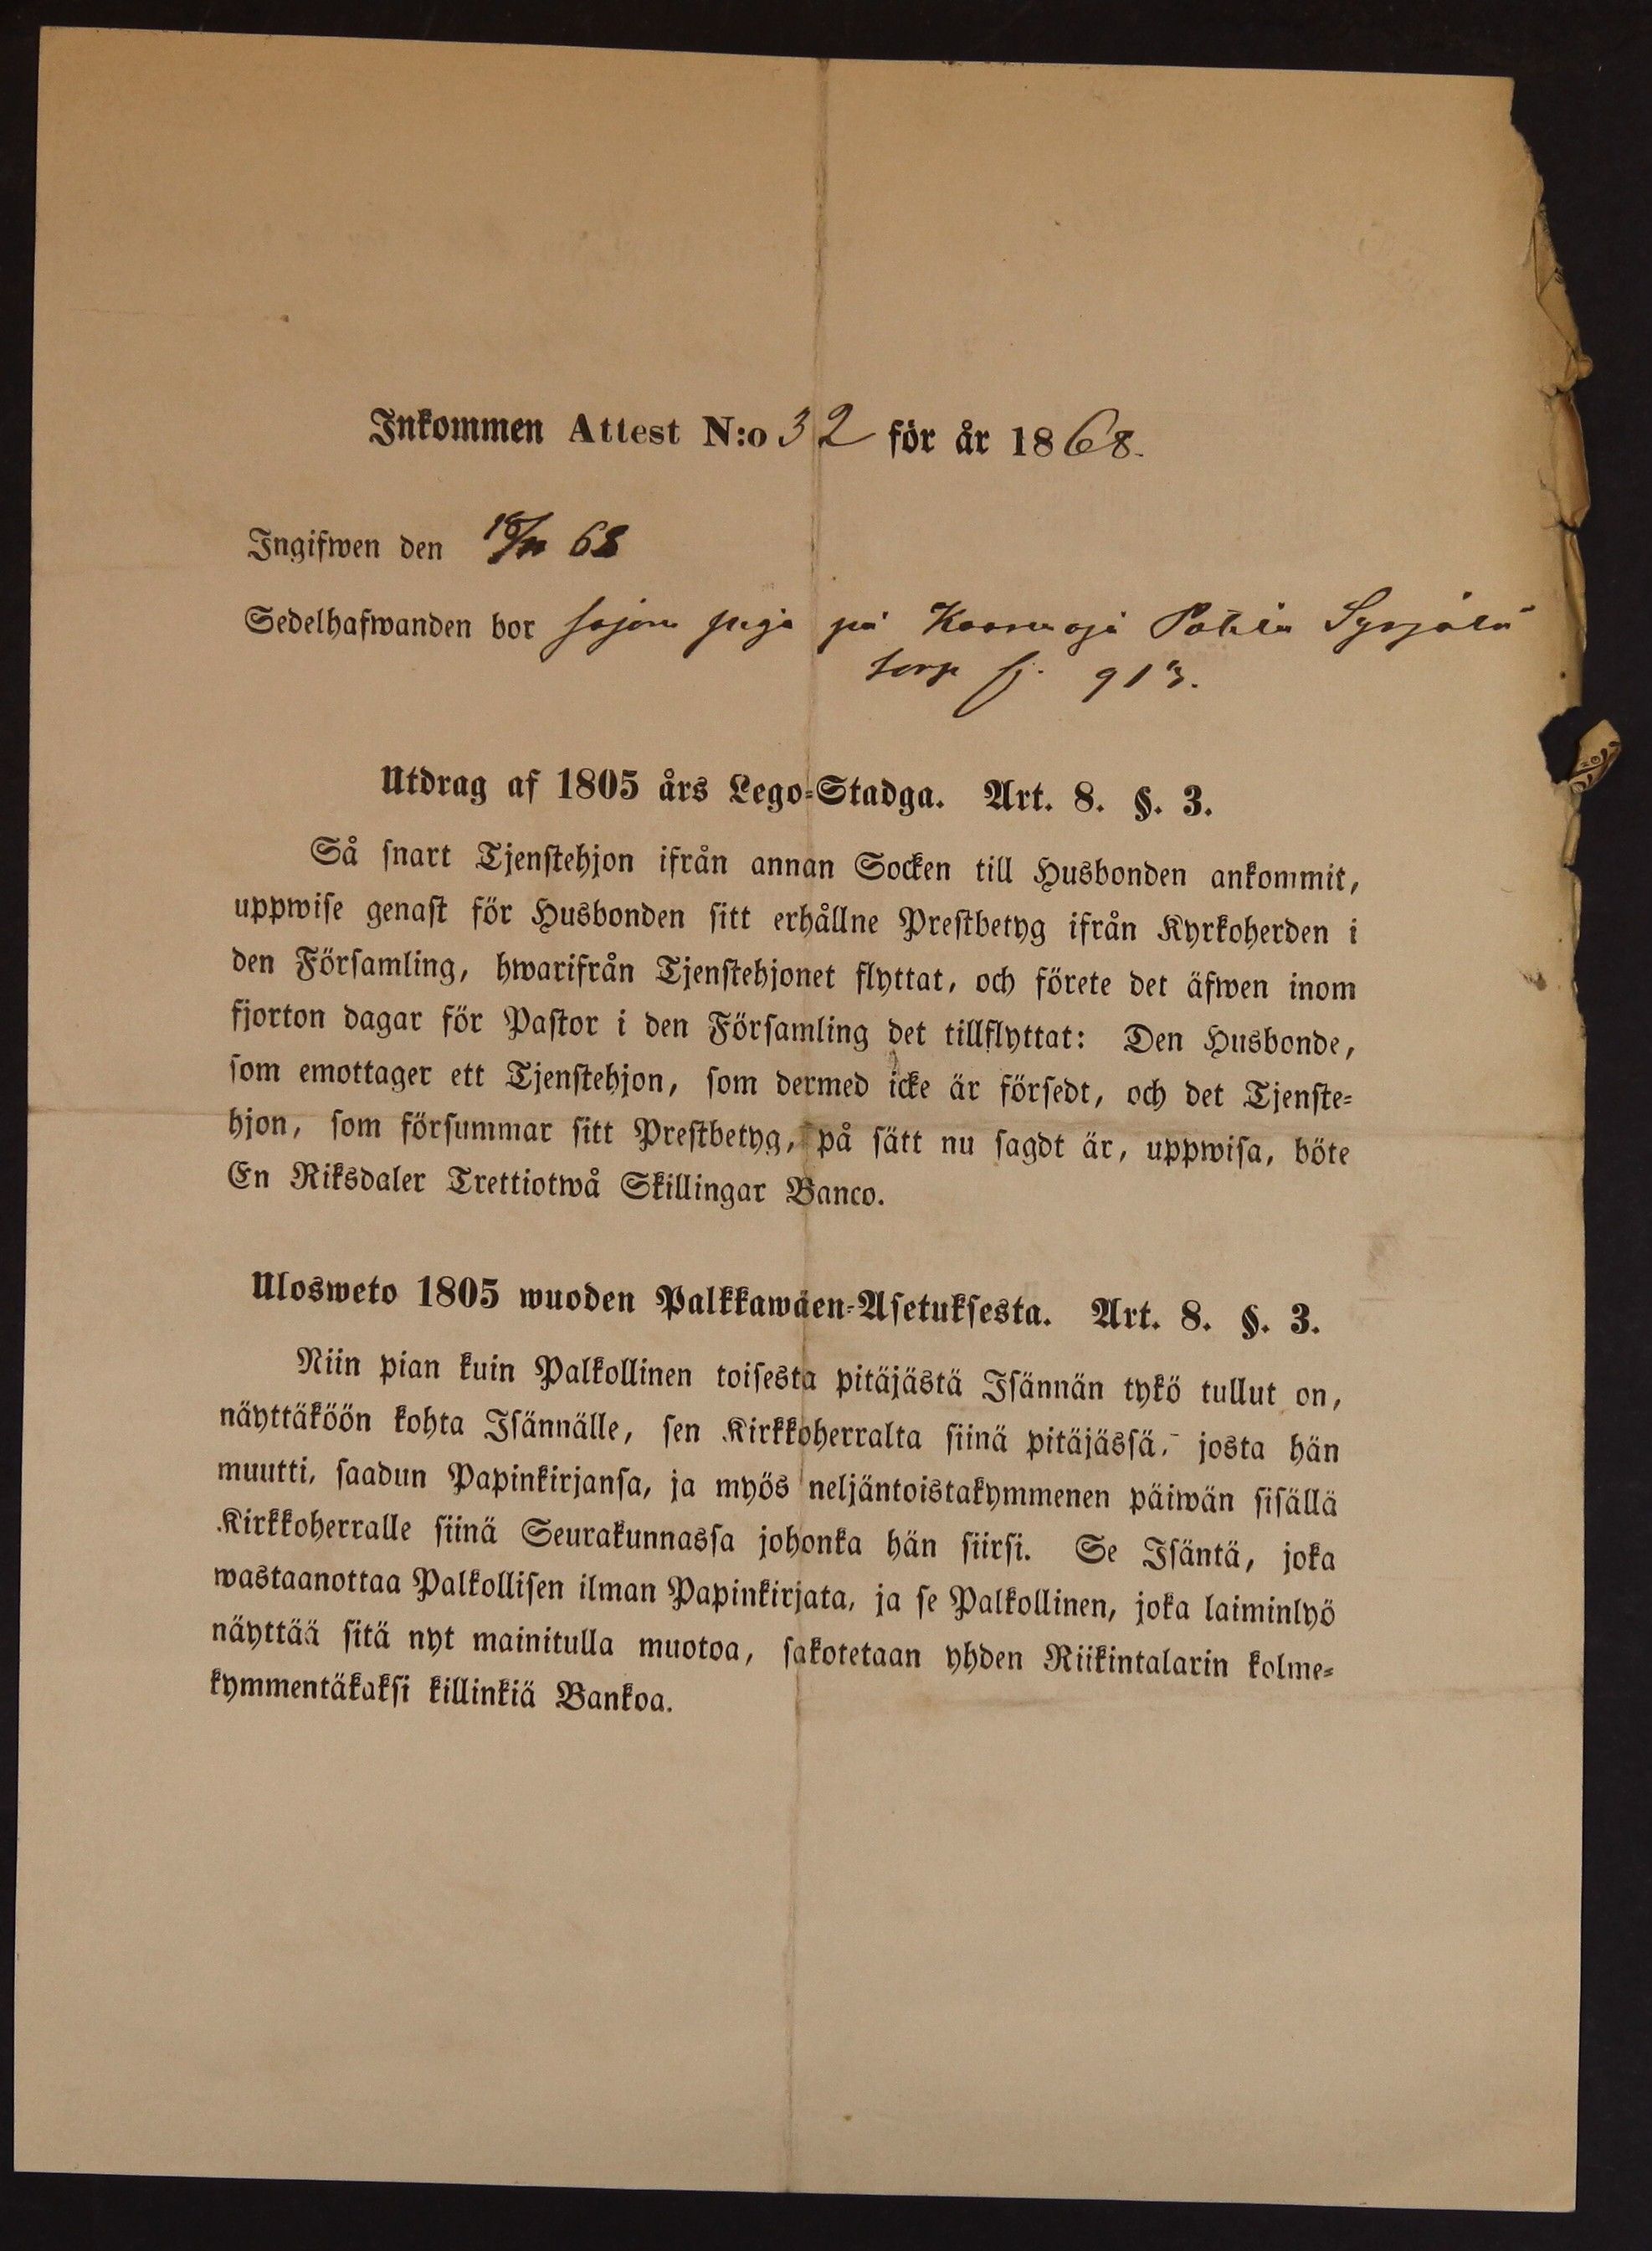 Inkommen Attest N:o 32 för år 1868.
Ingifwen den 68
Sedelhafwanden bor såsom piga på
torp 913.
Utdrag af 1805 års Lego-Stadga. Art. 8. §. 3.
Så snart Tjenstehjon ifrån annan Socken till Husbonden ankommit,
uppwise genast för Husbonden sitt erhållne Prestbetyg ifrån Kyrkoherden i
den Församling, hwarifrån Tjenstehjonet flyttat, och förete det äfwen inom
fjorton dagar för Pastor i den Församling det tillflyttat: Den Husbonde,
som emottager ett Tjenstehjon, som dermed icke är försedt, och det Tjenste-
hjon, som försummar sitt Prestbetyg, på sätt nu sagdt är, uppwisa, böte
En Riksdaler Trettiotwå Skillingar Banco.
Ulosweto 1805 wuoden Palkkawäen-Asetuksesta. Art. 8. §. 3.
Niin pian kuin Palkollinen toisesta pitäjästä Isännän tykö tullut on,
näyttäköön kohta Isännälle, sen Kirkkoherralta siinä pitäjässä, josta hän
muutti, saadun Papinkirjansa, ja myös neljäntoistakymmenen päiwän sisällä
Kirkkoherralle siinä Seurakunnassa johonka hän siirsi. Se Isäntä, joka
wastaanottaa Palkollisen ilman Papinkirjata, ja se Palkollinen, joka laiminlyö
näyttää sitä nyt mainitulla muotoa, sakotetaan yhden Riikintalarin kolme-
kymmentäkaksi killinkiä Bankoa.